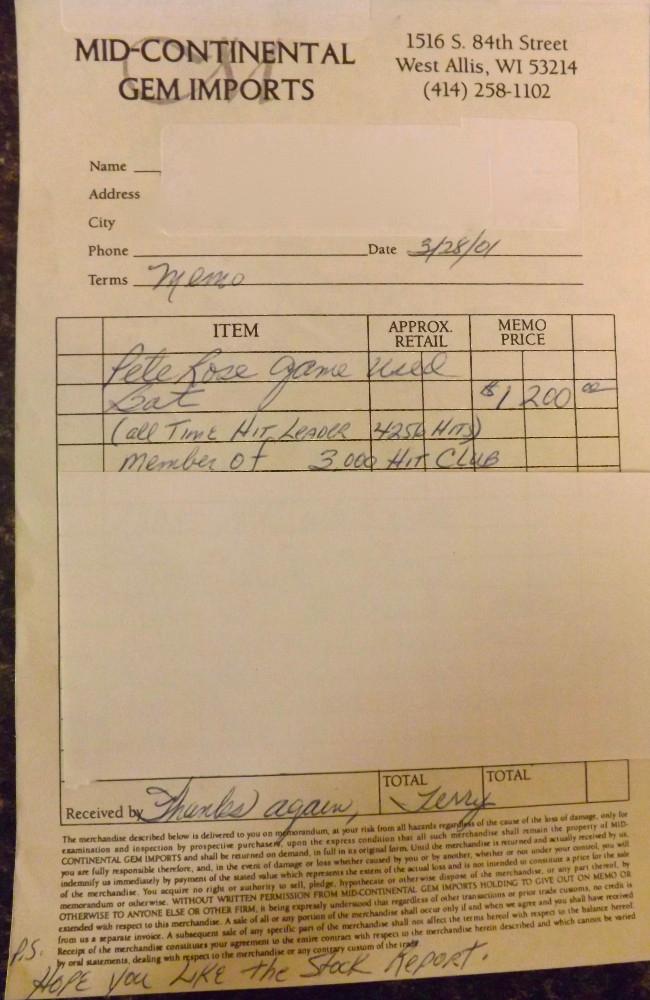 MID-CONTINENTAL
GEM IMPORTS
1516 S. 84th Street
West Allis, WI 53214
(414) 258-1102
Name
Address
City
Phone Date 3/28/01
Terms Memo
ITEM APPROX. RETAIL MEMO PRICE
Pete Rose game used
Bat $1 200 00
(all Time Hit Leader 4256 Hits)
Member of 3,000 Hit Club
TOTAL TOTAL
Received by Thanks again, Jerry
The merchandise described below is delivered to you on memorandum, at your risk from all hazards regardless of the cause of the loss of damage, only for
examination and inspection by prospective purchasers, upon the express condition that all such merchandise shall remain the property of MID-
CONTINENTAL GEM IMPORTS and shall be returned on demand, in full in its original form. Until the merchandise is returned and actually received by us,
you are fully responsible therefore, and, in the event of damage or loss whether caused by you or by another, whether or not under your control, you will
indemnify us immediately by payment of the stated value which represents the extent of the actual loss and is not intended to constitute a price for the sale
of the merchandise. You acquire no right or authority to sell, pledge, hypothecate or otherwise dispose of the merchandise, or any part thereof, by
memorandum or otherwise. WITHOUT WRITTEN PERMISSION FROM MID-CONTINENTAL GEM IMPORTS HOLDING TO GIVE OUT ON MEMO OR
OTHERWISE TO ANYONE ELSE OR OTHER FIRM, it being expressly understood that regardless of other transactions or prior trade customs, no credit is
extended with respect to this merchandise. A sale of all or any portion of the merchandise shall occur only if and when we agree and you shall have received
from us a separate invoice. A subsequent sale of any specific part of the merchandise shall not affect the terms hereof with respect to the balance hereof.
Receipt of the merchandise constitutes your agreement to the entire contract with respect to the merchandise herein described and which cannot be varied
by oral statements, dealing with respect to the merchandise or any contrary custom of the trade.
P.S. Hope you Like the Stock Report.